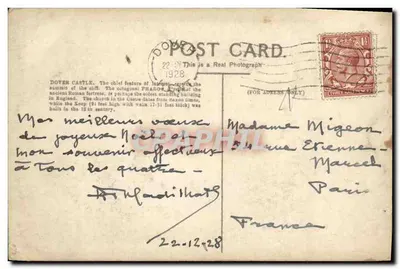 POST CARD.
This is a Real Photograph
DOVER
1928
DOVER CASTLE. The chief feature of
summit of the cliff. The octagonal PHAROS
ancient Roman fortress, is perhaps the oldest standing building
in England. The church in the
while the Keep
built in the 12th century.
(FOR ADDRESS ONLY)
Mes meilleurs vœux
de joyeux Noël et
mon souvenir affectueux
à tous les quatre.
22-12-28
Madame Migeon
rue Etienne-
Marcel
Paris
France